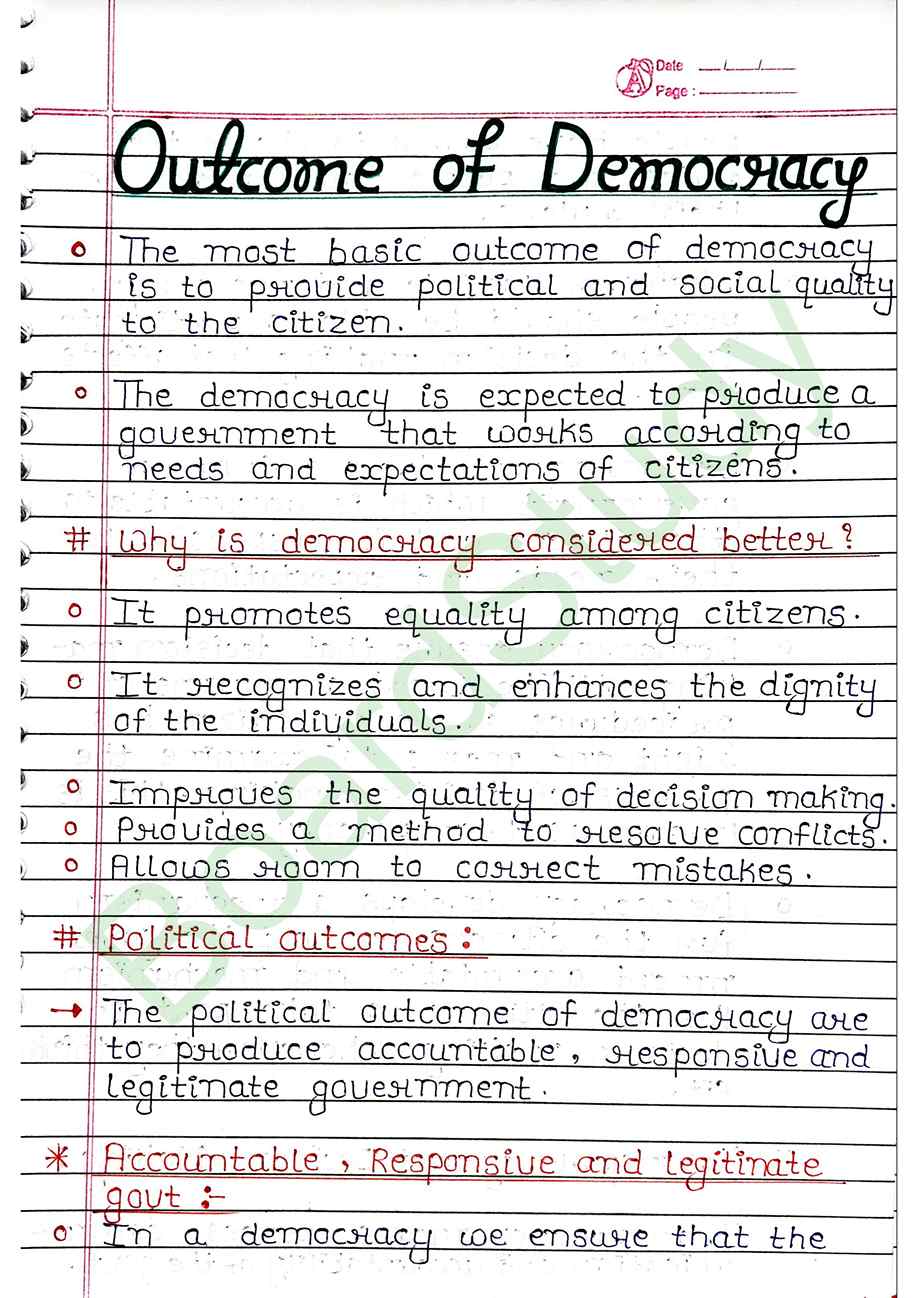 Date __/__/__
Page : ______
Outcome of Democracy
o The most basic outcome of democracy
is to provide political and social quality
to the citizen.
o The democracy is expected to produce a
government that works according to
needs and expectations of citizens.
# Why is democracy considered better?
o It promotes equality among citizens.
o It recognizes and enhances the dignity
of the individuals.
o Improves the quality of decision making.
o Provides a method to resolve conflicts.
o Allows room to correct mistakes.
# Political outcomes :
→ The political outcome of democracy are
to produce accountable, responsive and
legitinate government.
* Accountable, Responsive and legitinate
govt :-
o In a democracy we ensure that the
BoardStudy